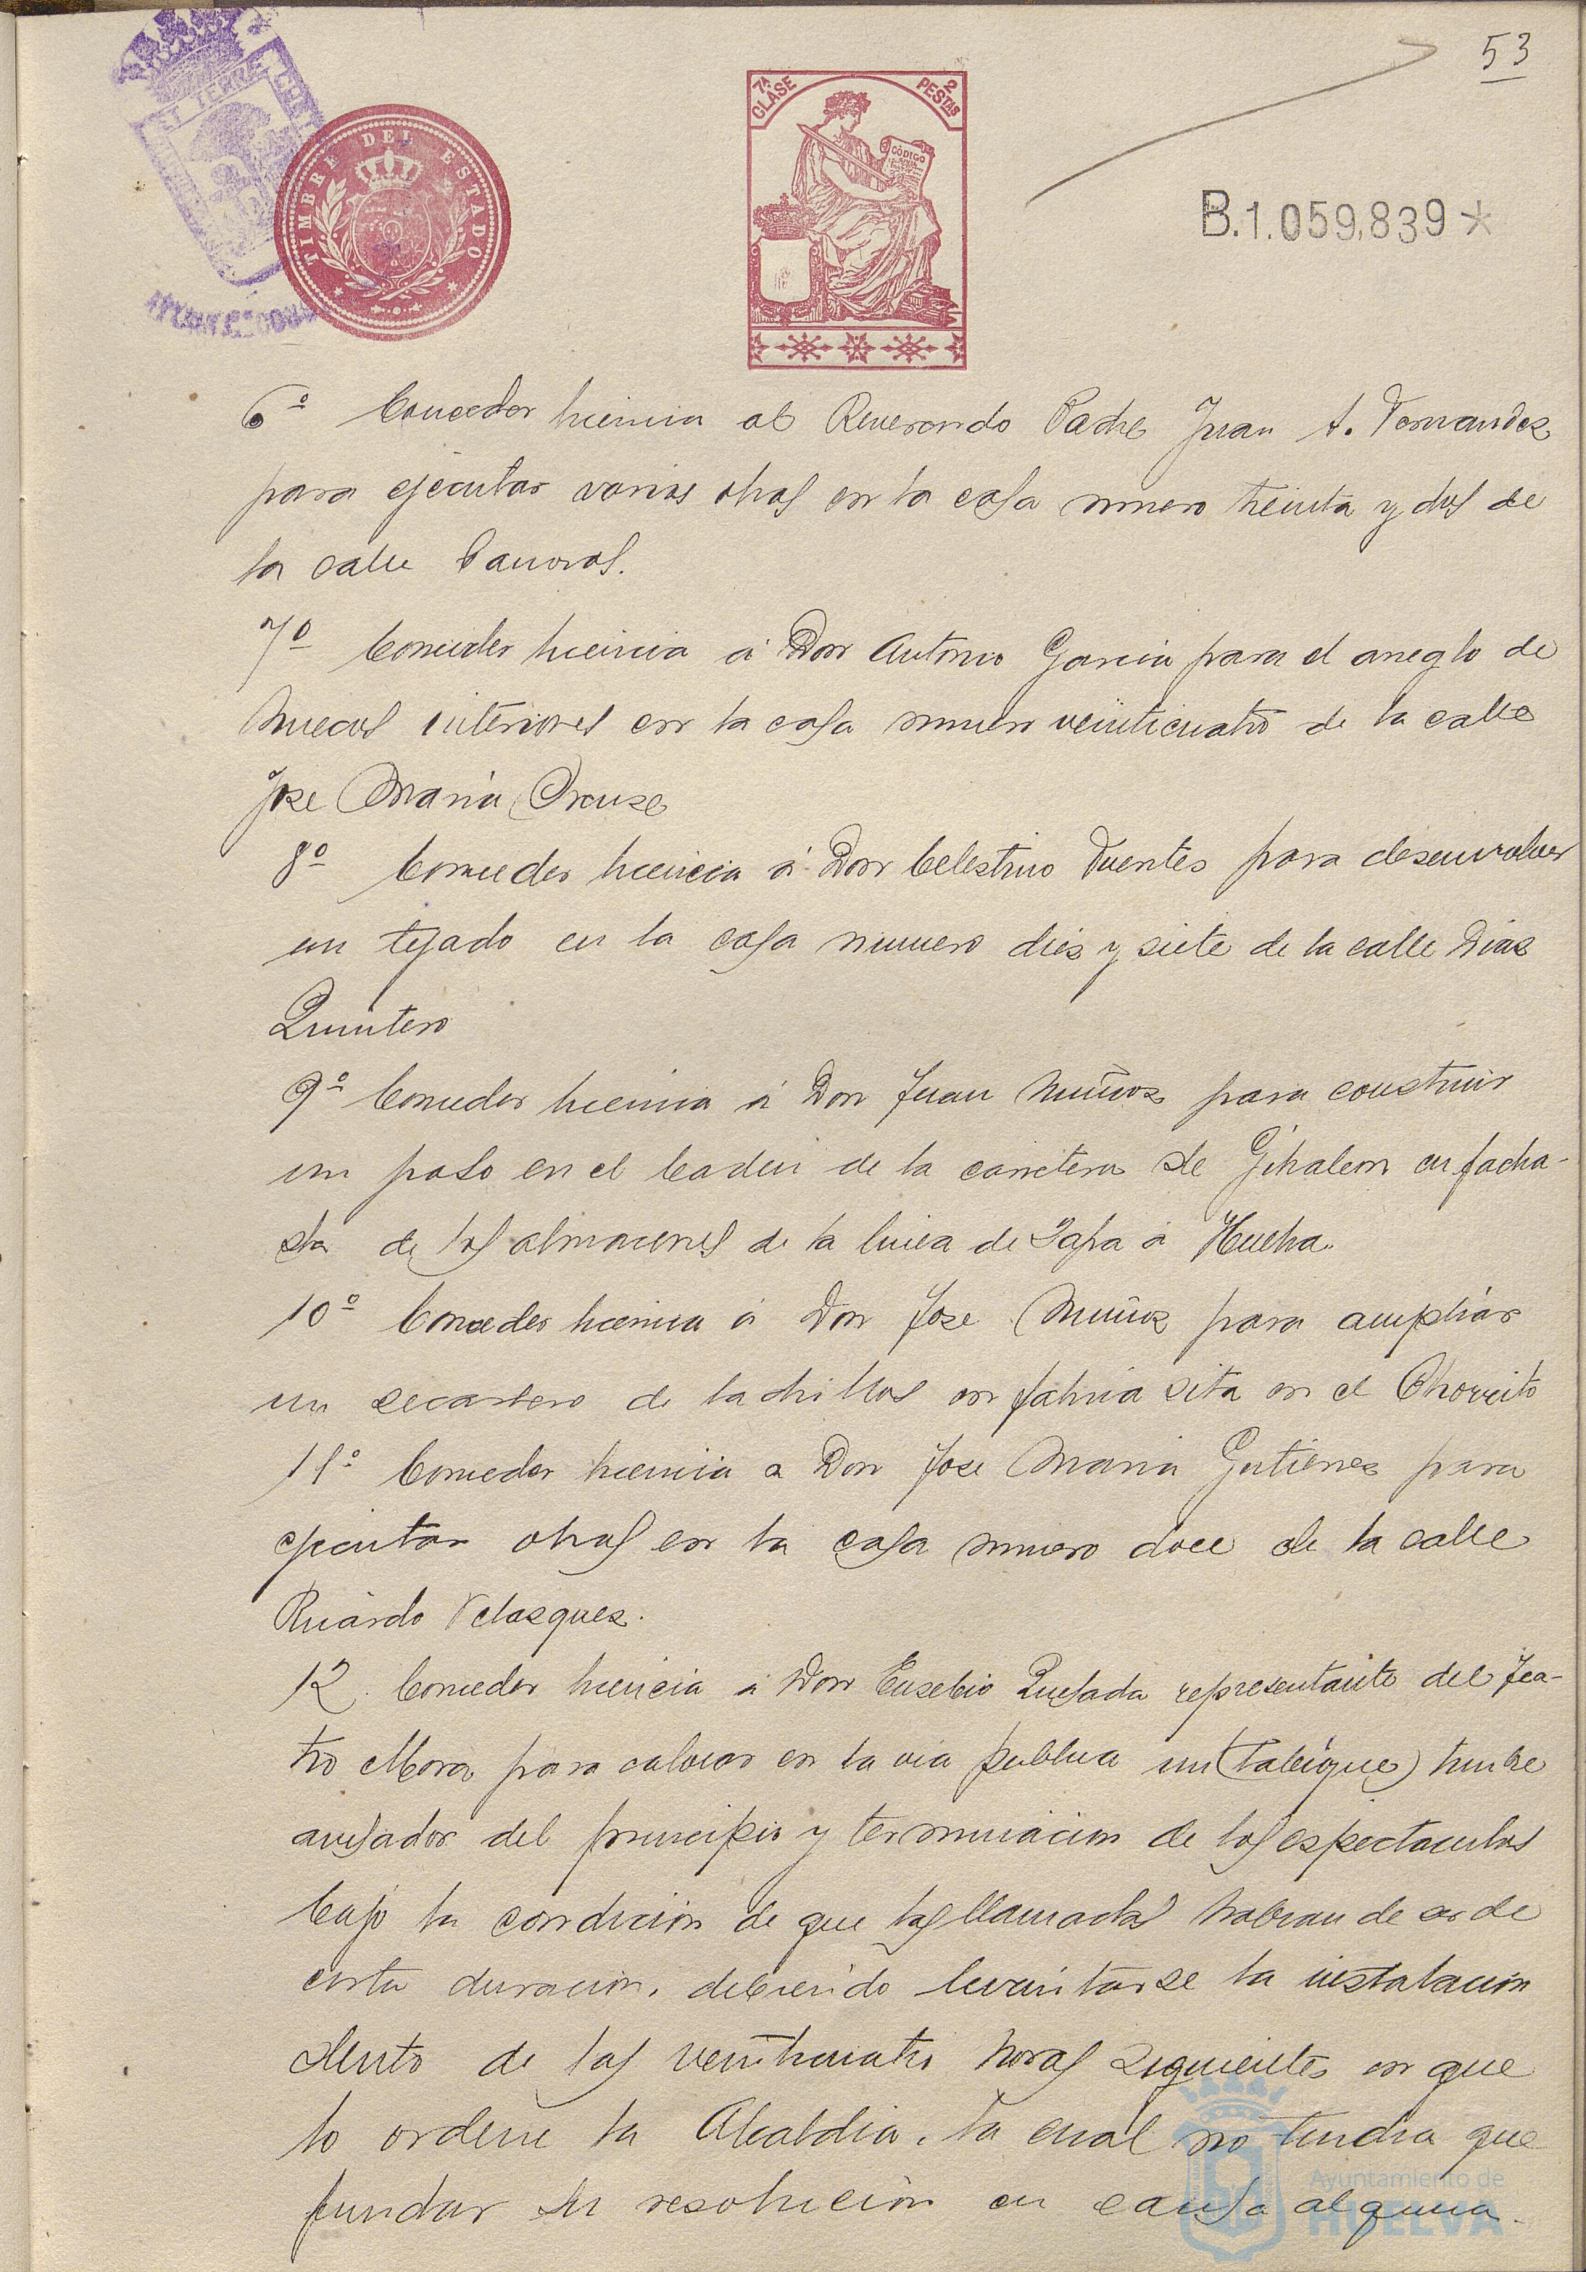 53
7ª CLASE
2 PESTAS
CÓDIGO
TIMBRE DEL ESTADO
B.1.059,839*
6º Conceder licencia al Reverendo Padre Juan A. Fernandez
para ejecutar varias obras en la casa numero treinta y dos de
la calle Canovas.
7º Conceder licencia á Don Antonio Garcia para el arreglo de
huecos interiores en la casa numero veinticuatro de la calle
Jose Maria Orense
8º Conceder licencia á Don Celestino Fuentes para desenvolver
un tejado en la casa numero dies y siete de la calle Dias
Quintero
9º Conceder licencia á Don Juan Muñoz para construir
un paso en el de la carretera de Gibraleon en facha-
da de los almacenes de la linea de Zafra á Huelva.
10º Conceder licencia á Don Jose Muñoz para ampliar
un secadero de ladrillos en fabrica sita en el Chorrito
11º Conceder licencia a Don Jose Maria Gutierres para
ejecutar obras en la casa numero doce de la calle
Ricardo Velasques.
12. Conceder licencia á Don Eusebio Quesada representante del Tea-
tro Mora para colocar en la via publica un (tabique) timbre
avisador del principio y terminacion de los espectaculos
bajo la condicion de que las llamadas habran de ser de
corta duracion, debiendo levantarse la instalacion
dentro de las veinticuatro horas siguientes en que
lo ordene la Alcaldia, la cual no tendra que
fundar su resolucion en causa alguna.
Ayuntamiento de
HUELVA